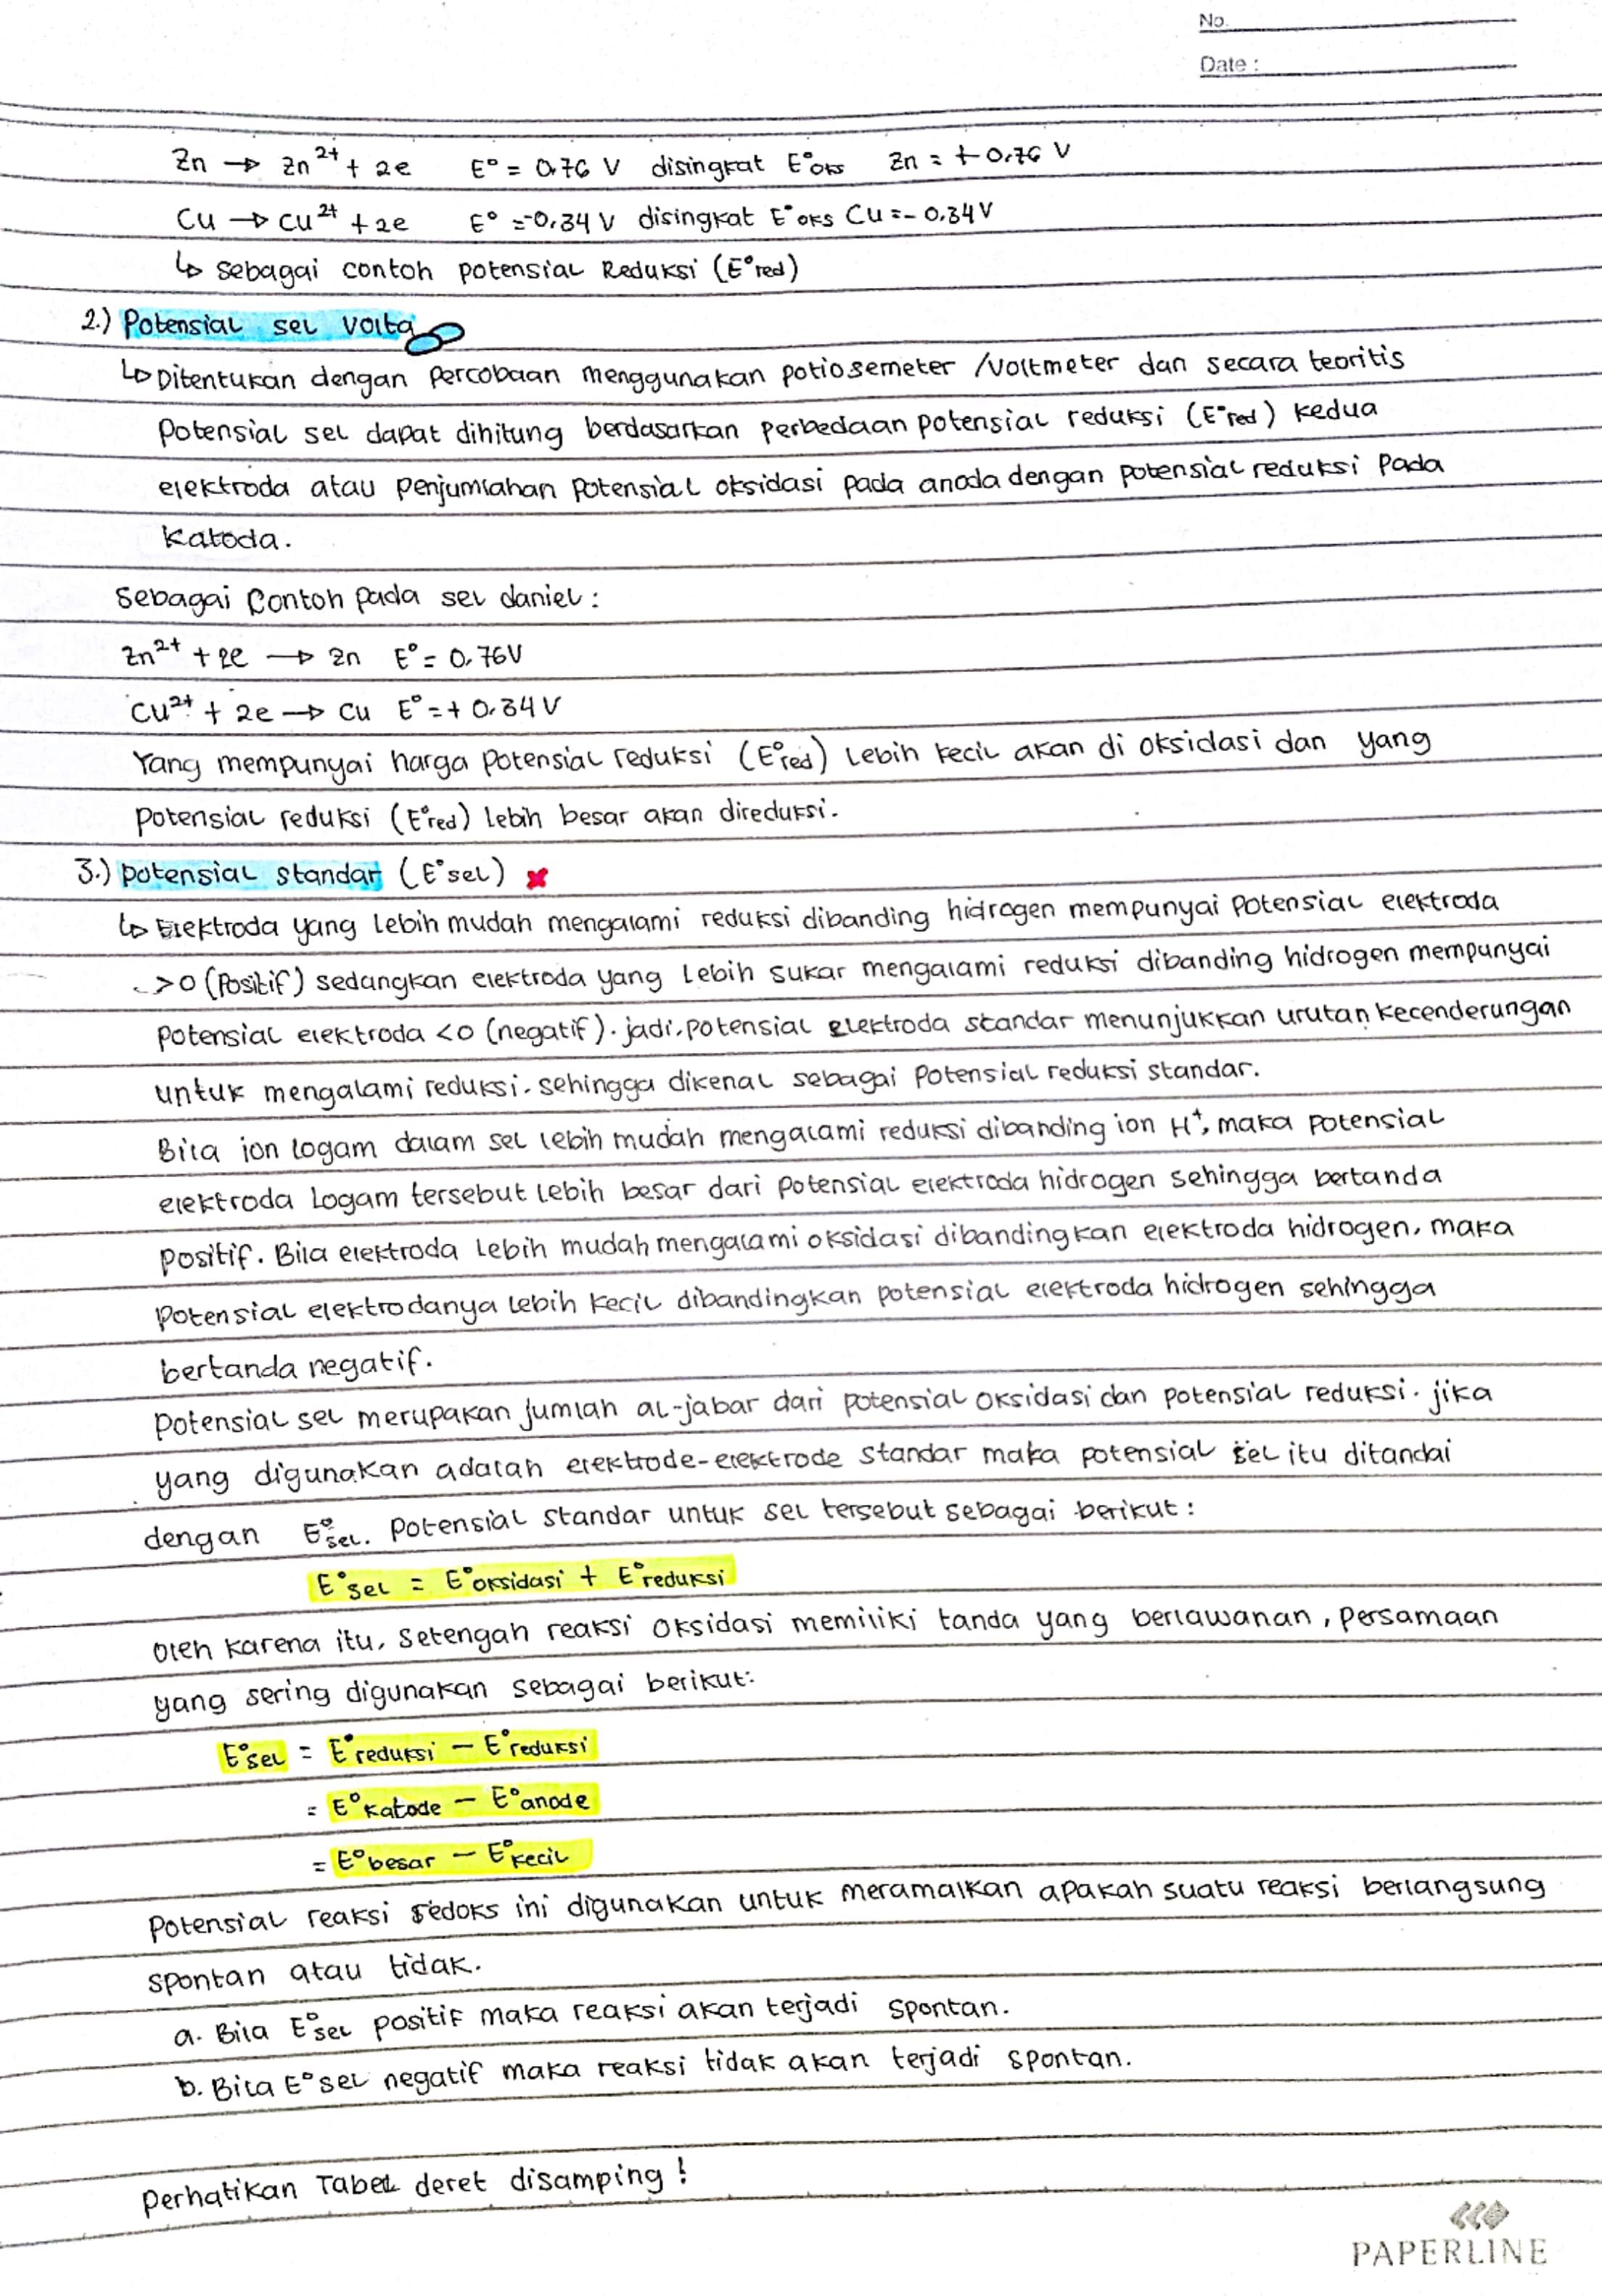 No.
Date :
Zn → Zn²⁺ + 2e E° = 0,76 V disingkat E°oks Zn = + 0,76 V
Cu → Cu²⁺ + 2e E° =-0,34 V disingkat E°oks Cu = - 0,34 V
↳ sebagai contoh potensial Reduksi (E°red)
2.) Potensial sel volta
↳ Ditentukan dengan percobaan menggunakan potiosemeter /voltmeter dan secara teoritis
potensial sel dapat dihitung berdasarkan perbedaan potensial reduksi (E°red) kedua
elektroda atau penjumlahan potensial oksidasi pada anoda dengan potensial reduksi pada
katoda.
Sebagai Contoh pada sel daniel :
Zn²⁺ + 2e → Zn E° = 0,76V
Cu²⁺ + 2e → Cu E° = + 0,34 V
Yang mempunyai harga potensial reduksi (E°red) lebih kecil akan di oksidasi dan yang
potensial reduksi (E°red) lebih besar akan direduksi.
3.) potensial standar (E°sel)
↳ Elektroda yang lebih mudah mengalami reduksi dibanding hidrogen mempunyai potensial elektroda
>0 (Positif) sedangkan elektroda yang lebih sukar mengalami reduksi dibanding hidrogen mempunyai
potensial elektroda <0 (negatif). jadi, potensial elektroda standar menunjukkan urutan kecenderungan
untuk mengalami reduksi. sehingga dikenal sebagai potensial reduksi standar.
Bila ion logam dalam sel lebih mudah mengalami reduksi dibanding ion H⁺, maka potensial
elektroda logam tersebut lebih besar dari potensial elektroda hidrogen sehingga bertanda
positif. Bila elektroda lebih mudah mengalami oksidasi dibandingkan elektroda hidrogen, maka
potensial elektrodanya lebih kecil dibandingkan potensial elektroda hidrogen sehingga
bertanda negatif.
potensial sel merupakan jumlah al-jabar dari potensial oksidasi dan potensial reduksi. jika
yang digunakan adalah elektrode-elektrode standar maka potensial sel itu ditandai
dengan E°sel. potensial standar untuk sel tersebut sebagai berikut :
E°sel = E°oksidasi + E°reduksi
oleh karena itu, setengah reaksi oksidasi memiliki tanda yang berlawanan, persamaan
yang sering digunakan sebagai berikut:
E°sel = E°reduksi - E°reduksi
= E°katode - E°anode
= E°besar - E°kecil
Potensial reaksi redoks ini digunakan untuk meramalkan apakah suatu reaksi berlangsung
spontan atau tidak.
a. Bila E°sel positif maka reaksi akan terjadi spontan.
b. Bila E°sel negatif maka reaksi tidak akan terjadi spontan.
perhatikan Tabel deret disamping !
PAPERLINE